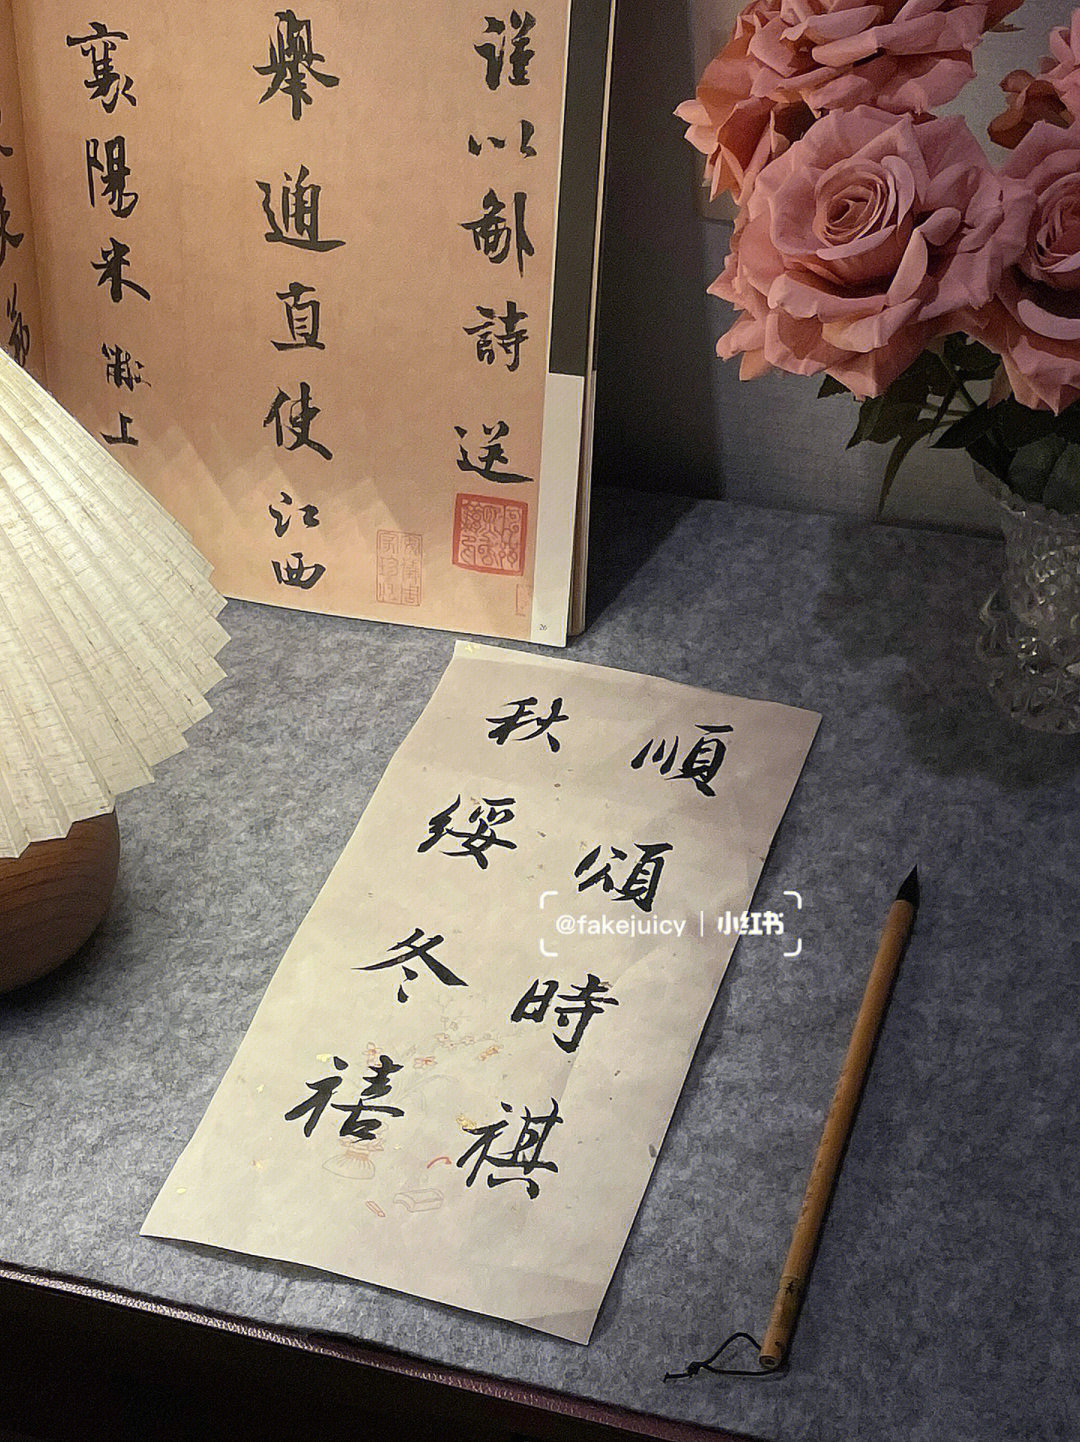 謹以鄙詩送
舉通直使江西
襄陽米黻上
順頌時祺
秋綏冬禧
@fakejuicy | 小红书
26